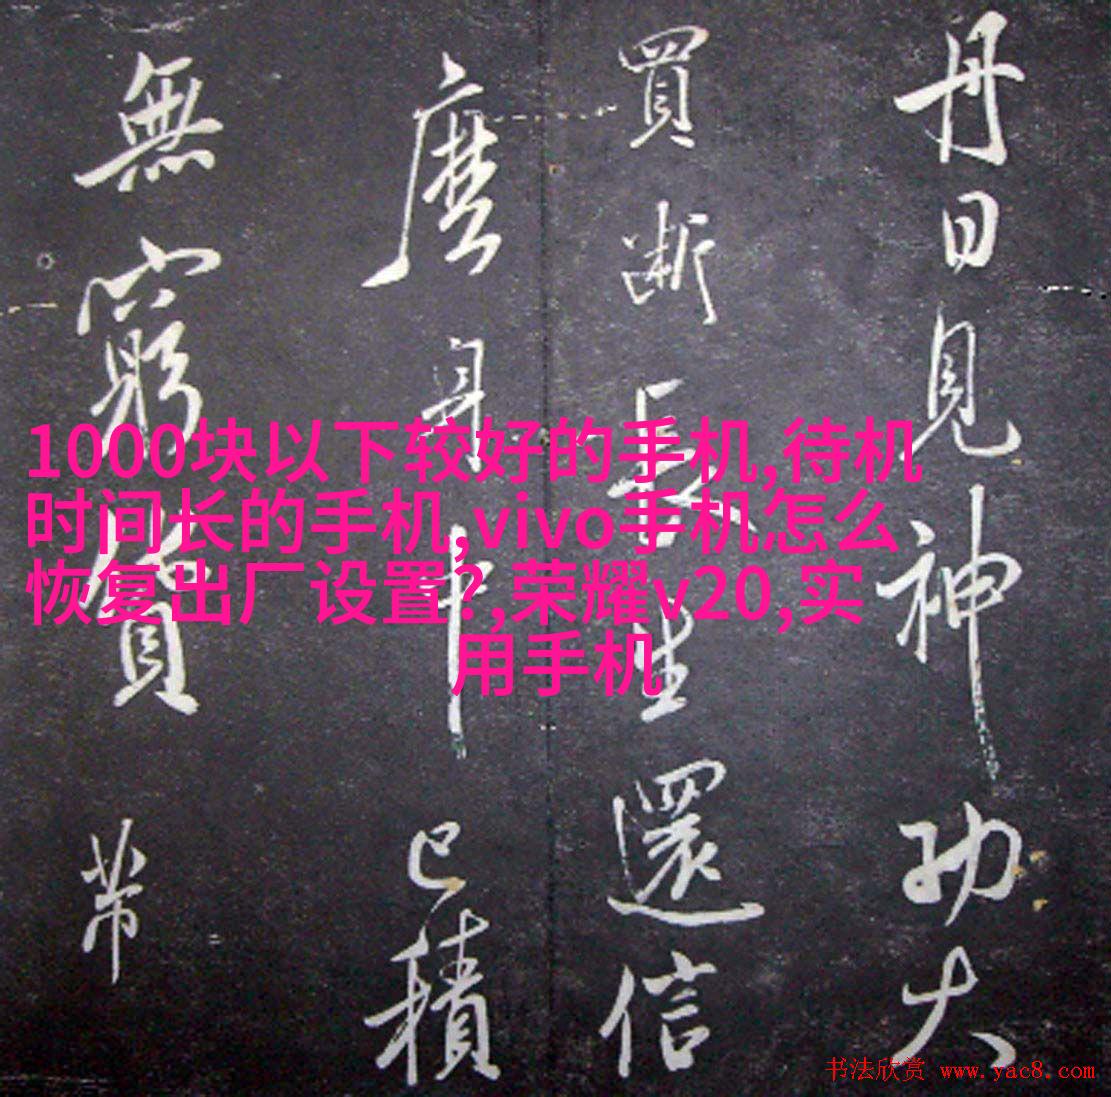 丹日見神功大
買斷長生還信
麼身中已積
無窮
帶
1000块以下较好的手机,待机
时间长的手机,vivo手机怎么
恢复出厂设置?,荣耀v20,实
用手机
书法欣赏 www.yac8.com